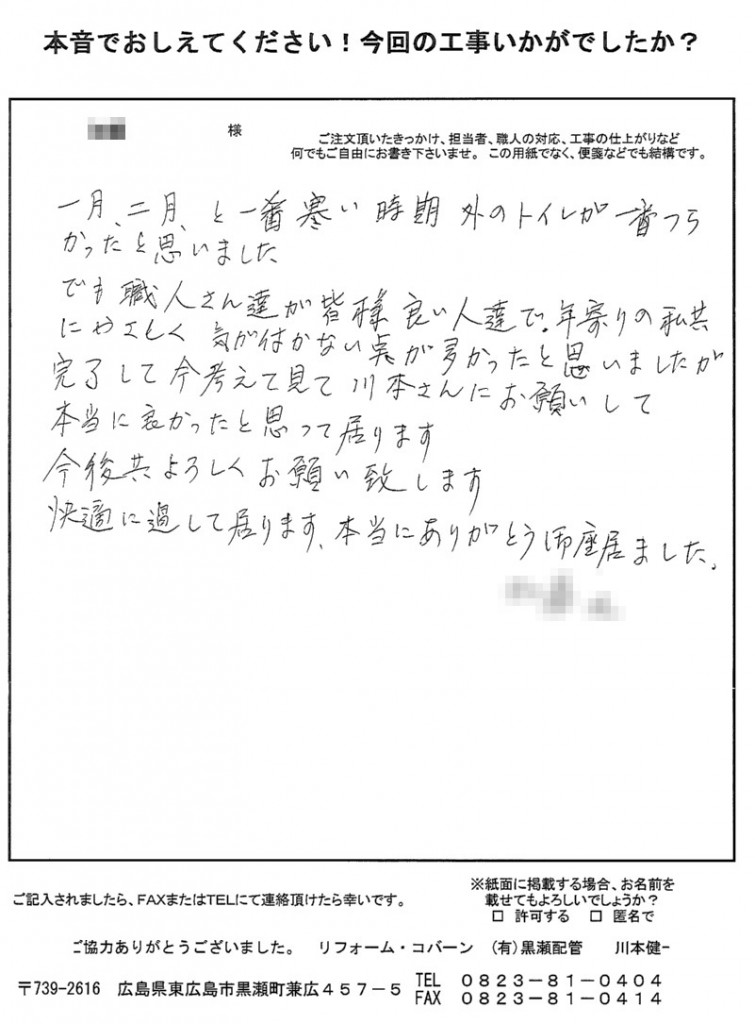 本音でおしえてください！今回の工事いかがでしたか？
様
ご注文頂いたきっかけ、担当者、職人の対応、工事の仕上がりなど
何でもご自由にお書き下さいませ。この用紙でなく、便箋などでも結構です。
一月、二月、と一番寒い時期 外のトイレが一番つら
かったと思いました
でも職人さん達が皆様良い人達で。年寄りの私共
にやさしく 気が付かない点が多かったと思いましたが
完了して今考えて見て川本さんにお願いして
本当に良かったと思って居ります
今後共よろしくお願い致します
快適に過して居ります、本当にありがとう御座居ました。
ご記入されましたら、FAXまたはTELにて連絡頂けたら幸いです。
※紙面に掲載する場合、お名前を
載せてもよろしいでしょうか？
□ 許可する □ 匿名で
ご協力ありがとうございました。 リフォーム・コバーン （有）黒瀬配管 川本健一
〒739-2616 広島県東広島市黒瀬町兼広４５７－５
TEL ０８２３－８１－０４０４
FAX ０８２３－８１－０４１４